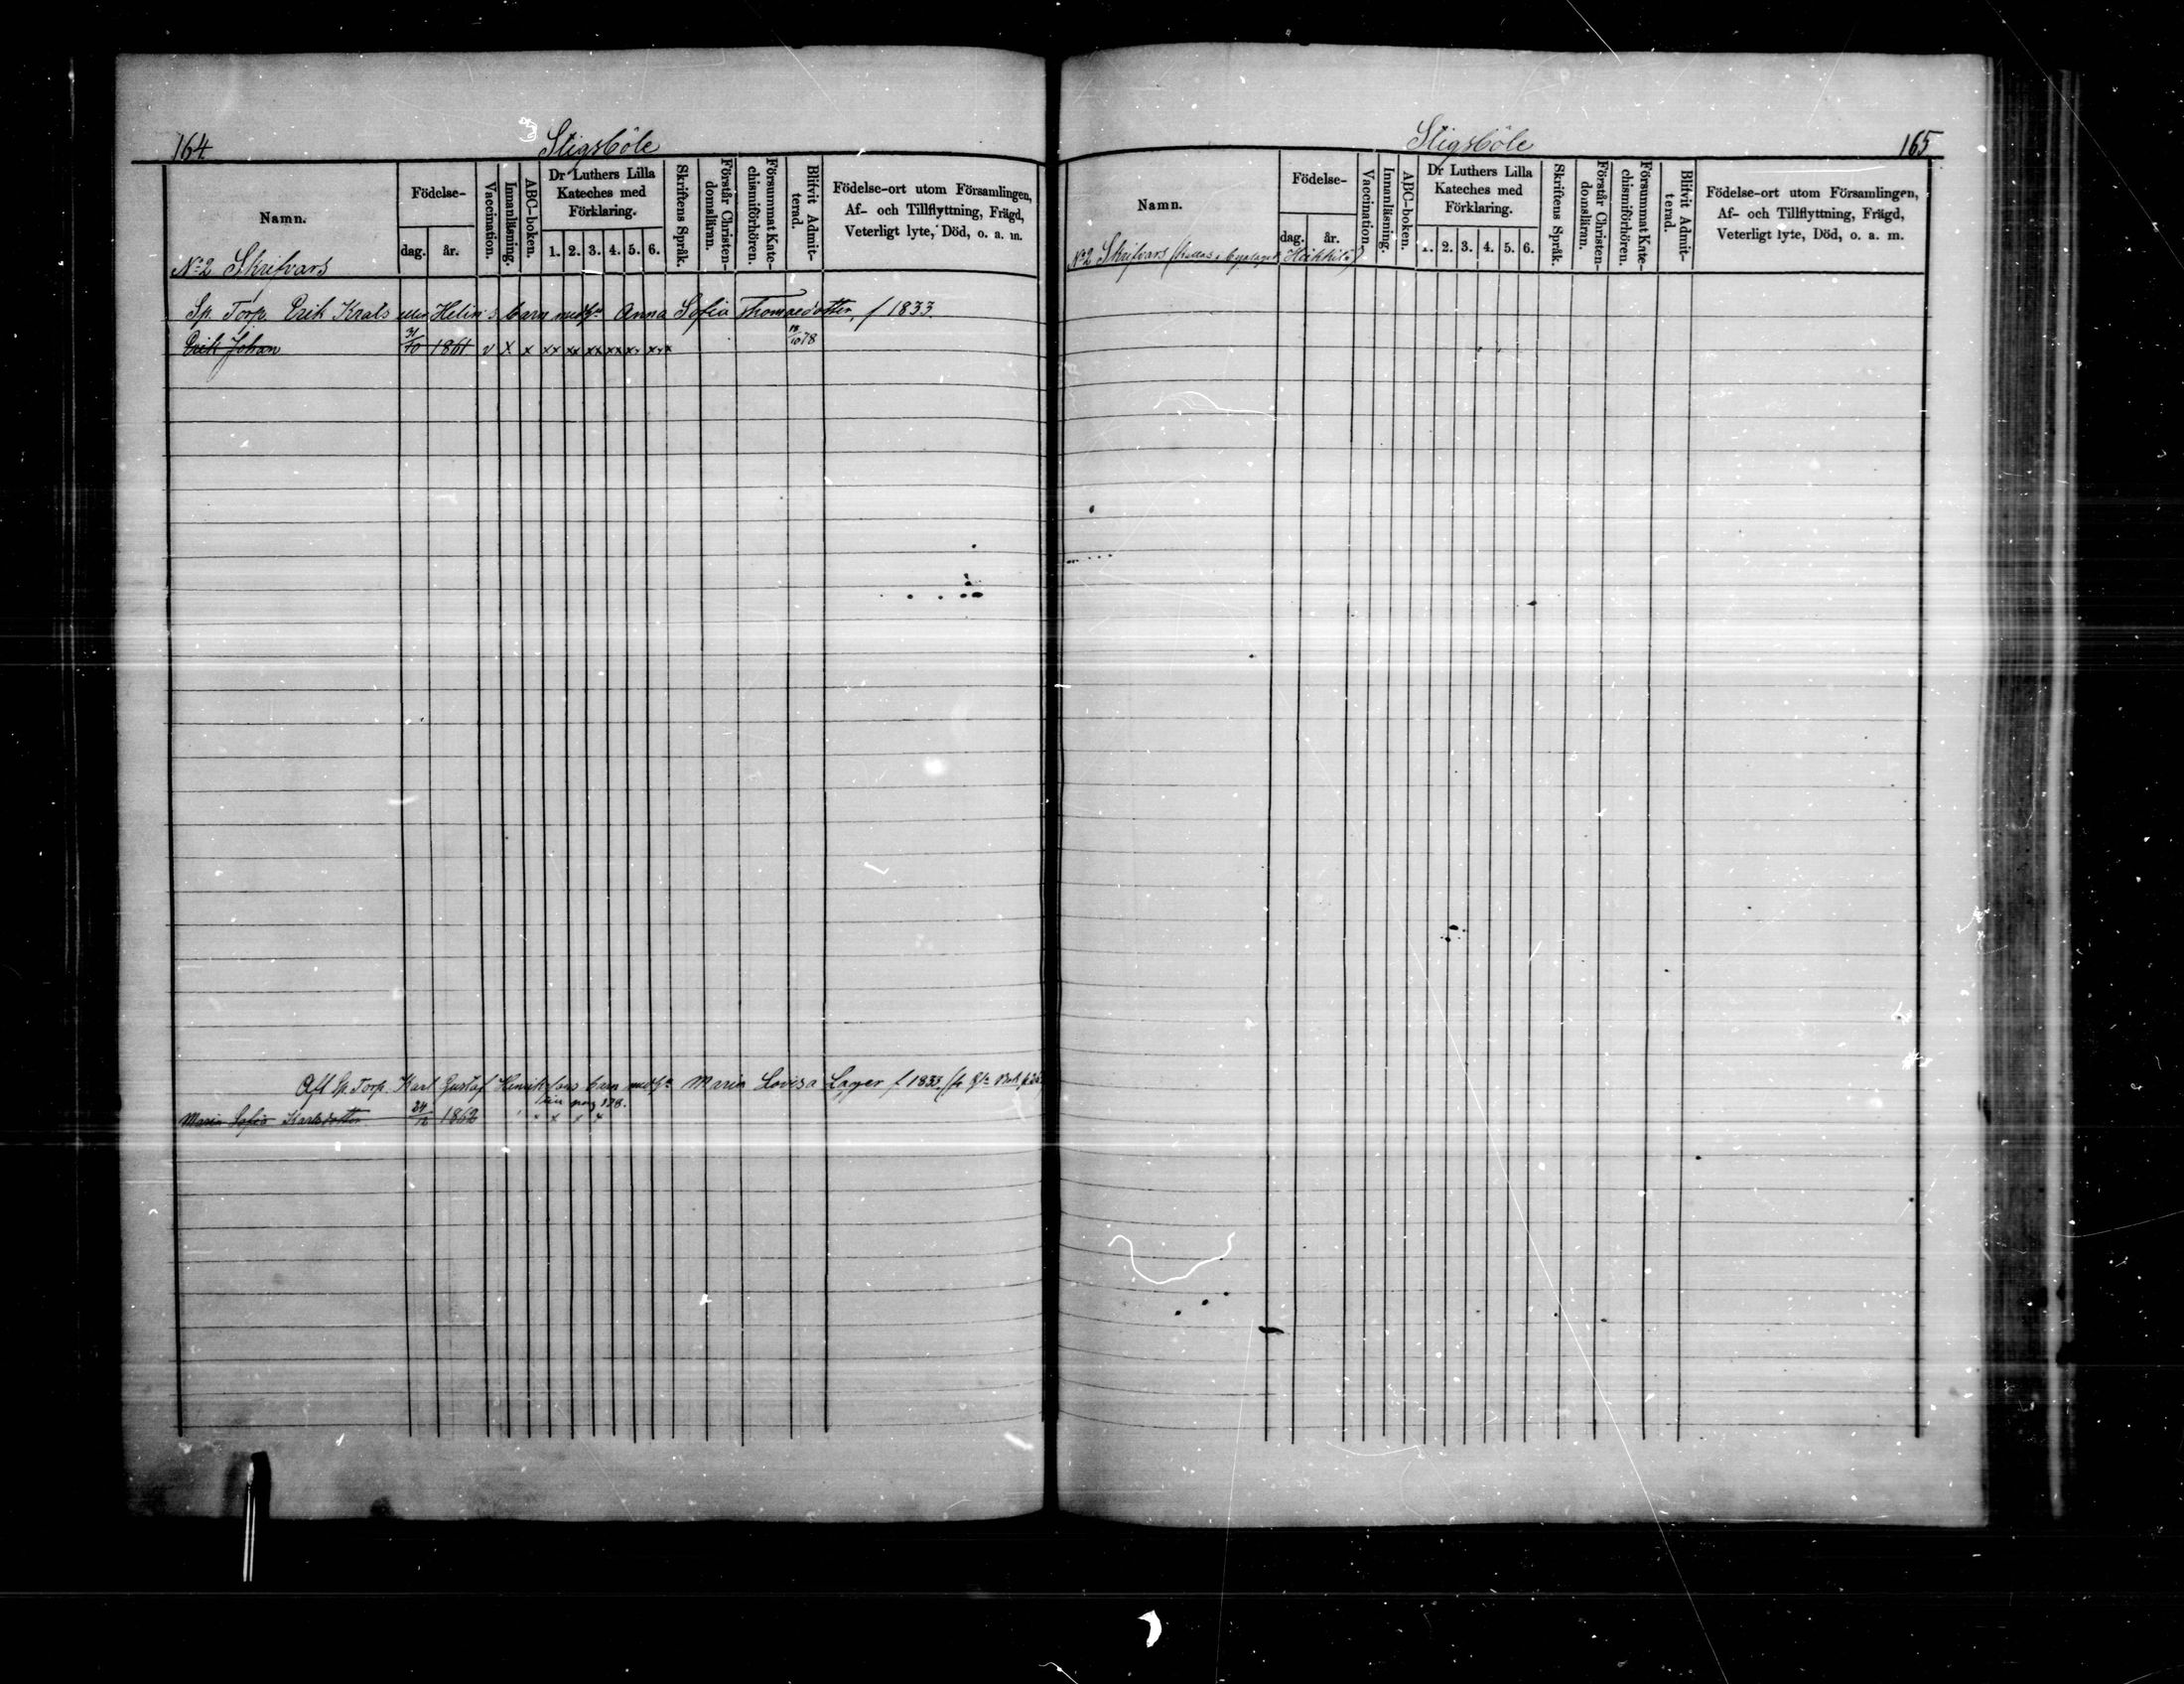 164 Stigsböle
Namn. Födelse- dag. år. Vaccination. Innanläsning. ABC-boken. Dr Luthers Lilla Kateches med Förklaring. 1. 2. 3. 4. 5. 6. Skriftens Språk. Förstår Christendomsläran. Försummat Katechismiförhören. Blifvit Admitterad. Födelse-ort utom Församlingen, Af- och Tillflyttning, Frägd, Veterligt lyte, Död, o. a. m.
No 2 Skrifvars
Sp. Torp. Erik Krals Helin's barn med Anna Sofia Thomasdotter, f 1833.
Erik Johan 31/10 1861 v x x xx xx xx xx x. x.x 78
Afl Sp. Torp. Karl Gustaf Henrikssons barn med Maria Lovisa Lager f 1833
pag 128.
Maria Sofia Karlsdotter 24/12 1862 x x x x
Stigsböle 165
Namn. Födelse- dag. år. Vaccination. Innanläsning. ABC-boken. Dr Luthers Lilla Kateches med Förklaring. 1. 2. 3. 4. 5. 6. Skriftens Språk. Förstår Christendomsläran. Försummat Katechismiförhören. Blifvit Admitterad. Födelse-ort utom Församlingen, Af- och Tillflyttning, Frägd, Veterligt lyte, Död, o. a. m.
No 2 Skrifvars (kallas i byalaget Heikkilä)